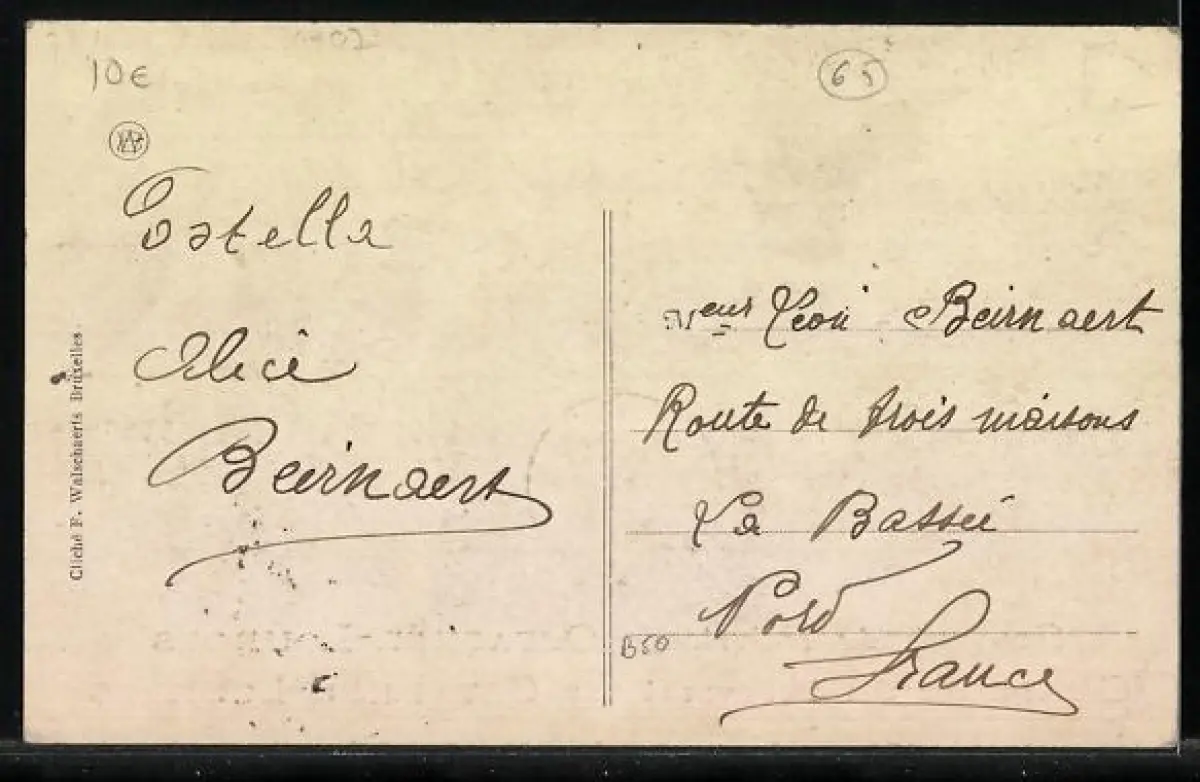 10€
65
Estella
Alice
Beirnaert
Cliché F. Walschaerts Bruxelles
Léon Beirnaert
Route de trois maisons
La Bassée
Nord
France
B50